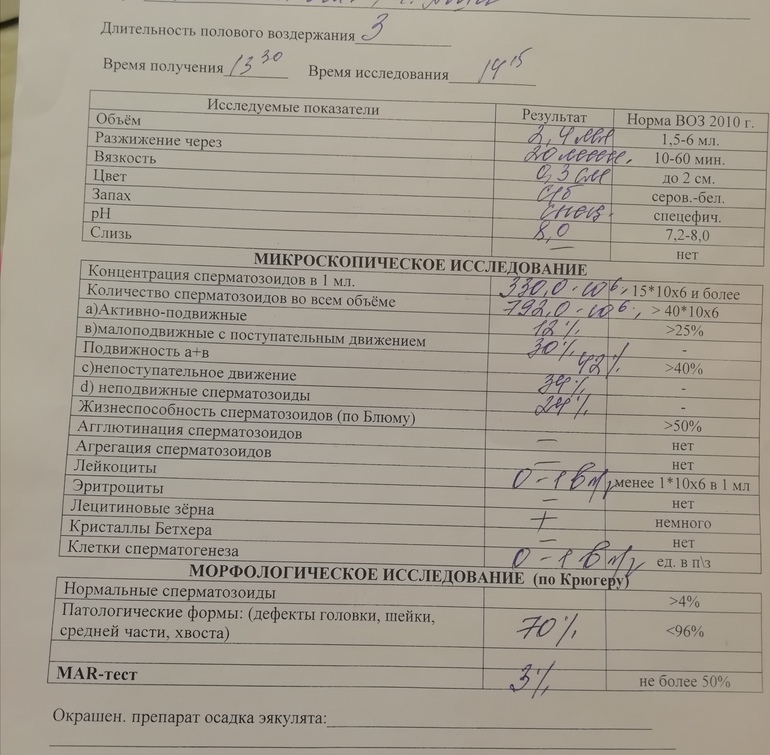 Длительность полового воздержания 3
Время получения 13 30 Время исследования 14 15
Исследуемые показатели Результат Норма ВОЗ 2010 г.
Объём 2,4 мл 1,5-6 мл.
Разжижение через 20 мин. 10-60 мин.
Вязкость 0,3 см до 2 см.
Цвет с/б серов.-бел.
Запах спец. спецефич.
pH 8,0 7,2-8,0
Слизь — нет
МИКРОСКОПИЧЕСКОЕ ИССЛЕДОВАНИЕ
Концентрация сперматозоидов в 1 мл. 330,0·10⁶ 15*10х6 и более
Количество сперматозоидов во всем объёме 792,0·10⁶ > 40*10х6
а)Активно-подвижные 12% >25%
в)малоподвижные с поступательным движением 30% -
Подвижность а+в 42% >40%
с)непоступательное движение 34% -
d) неподвижные сперматозоиды 24% -
Жизнеспособность сперматозоидов (по Блюму) >50%
Агглютинация сперматозоидов — нет
Агрегация сперматозоидов — нет
Лейкоциты 0-1 в п/з менее 1*10х6 в 1 мл
Эритроциты — нет
Лецитиновые зёрна + немного
Кристаллы Бетхера — нет
Клетки сперматогенеза 0-1 в п/з ед. в п\з
МОРФОЛОГИЧЕСКОЕ ИССЛЕДОВАНИЕ (по Крюгеру)
Нормальные сперматозоиды >4%
Патологические формы: (дефекты головки, шейки,
средней части, хвоста) 70% <96%
MAR-тест 3% не более 50%
Окрашен. препарат осадка эякулята: